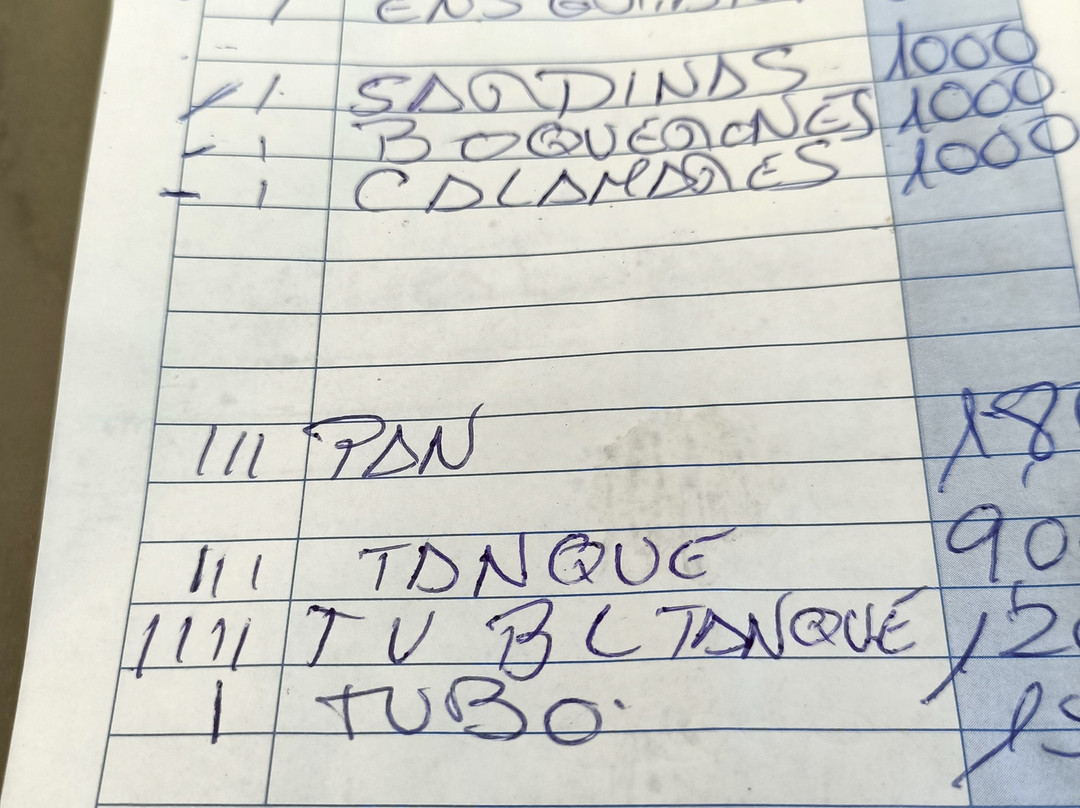 / 1 SARDINAS 1000
- 1 BOQUERONES 1000
- 1 CALAMARES 1000
111 PAN 18
111 TANQUE 90
1111 TU BL TANQUE 12
1 TUBO.